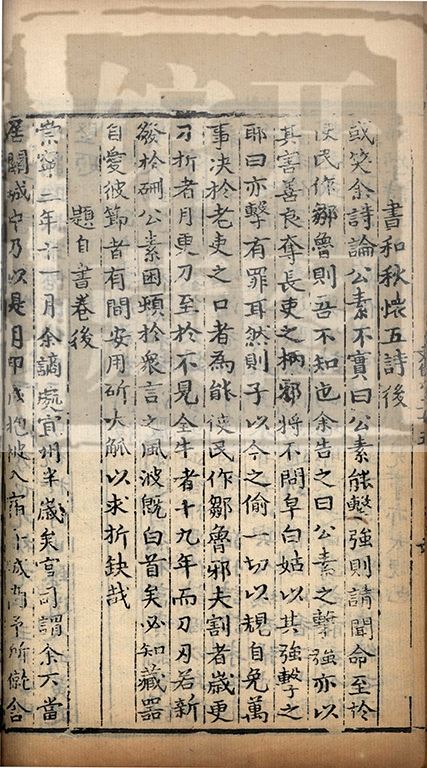 書和秋懷五詩後
或笑余詩論公素不實曰公素能擊強則請聞命至於
使民作鄒魯則吾不知也余告之曰公素之擊強亦以
其害善良奪長吏之柄邪將不問皁白姑以其強擊之
耶曰亦擊有罪耳然則子以今之偷一切以規自免萬
事决於老吏之口者為能使民作鄒魯邪夫割者歲更
刀折者月更刀至於不見全牛者十九年而刀刃若新
發於硎公素困頓於衆言之風波既白首矣必知藏器
自愛彼節者有間安用斫大觚以求折缺哉
題自書卷後
崇寧三年十一月余謫處宜州半歲矣官司謂余不當
居關城中乃以是月甲戌抱被入宿于城南予所僦舍